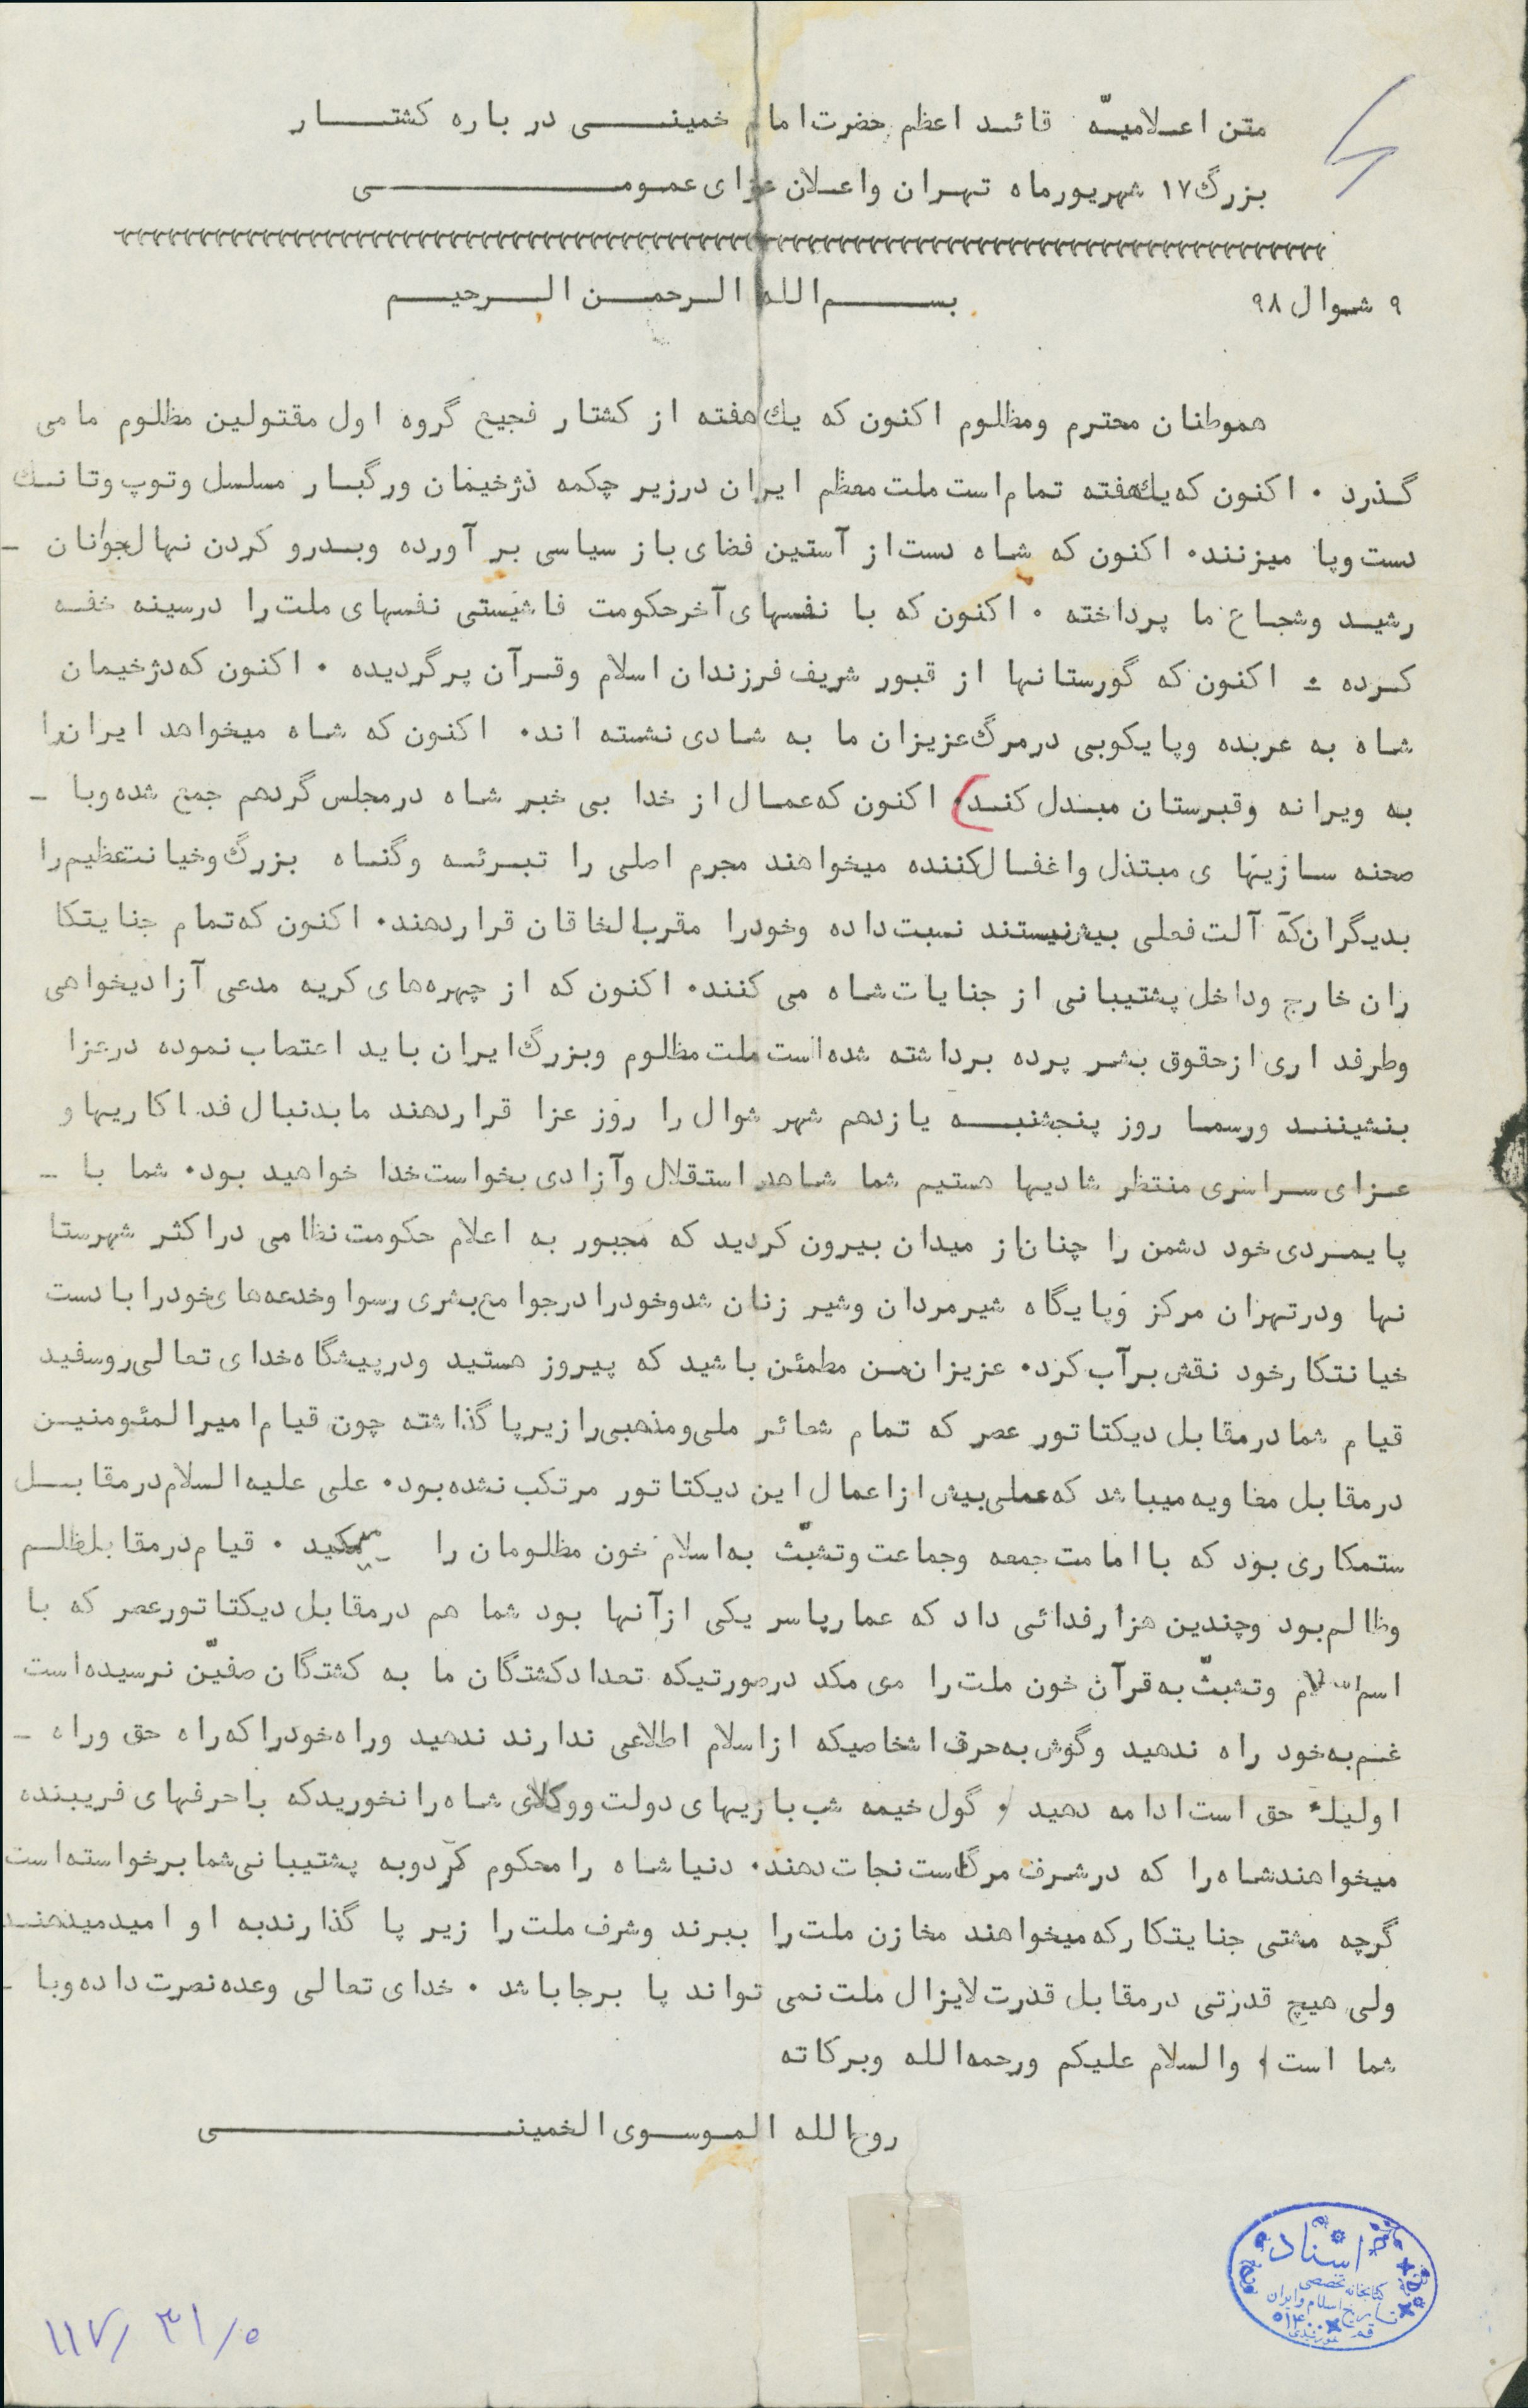 متن اعلامیّه قائد اعظم حضرت امام خمینی در باره کشتار
بزرگ ۱۷ شهریورماه تهران واعلان عزای عمومی
۹ شوال ۹۸
بسم الله الرحمن الرحیم
هموطنان محترم ومظلوم اکنون که یك هفته از کشتار فجیع گروه اول مقتولین مظلوم ما می
گذرد . اکنون که یك هفته تمام است ملت معظم ایران درزیر چکمه دژخیمان ورگبار مسلسل وتوپ وتانك
دست وپا میزنند. اکنون که شاه دست از آستین فضای باز سیاسی بر آورده وبدرو کردن نهال جوانان ـ
رشید وشجاع ما پرداخته . اکنون که با نفسهای آخر حکومت فاشیستی نفسهای ملت را درسینه خفه
کرده . اکنون که گورستانها از قبور شریف فرزندان اسلام وقرآن پر گردیده . اکنون که دژخیمان
شاه به عربده وپایکوبی درمرگ عزیزان ما به شادی نشسته اند. اکنون که شاه میخواهد ایران را
به ویرانه وقبرستان مبدل کند. اکنون که عمال از خدا بی خبر شاه درمجلس گردهم جمع شده وبا ـ
صحنه سازیهای مبتذل واغفال کننده میخواهند مجرم اصلی را تبرئه وگناه بزرگ وخیانت عظیم را
بدیگران که آلت فعلی بیش نیستند نسبت داده وخودرا مقرب الخاقان قرار دهند. اکنون که تمام جنایتکا
ران خارج وداخل پشتیبانی از جنایات شاه می کنند. اکنون که از چهره های کریه مدعی آزادیخواهی
وطرفداری از حقوق بشر پرده برداشته شده است ملت مظلوم وبزرگ ایران باید اعتصاب نموده درعزا
بنشینند ورسما روز پنجشنبه یازدهم شهر شوال را روز عزا قرار دهند ما بدنبال فداکاریها و
عزای سراسری منتظر شادیها هستیم شما شاهد استقلال وآزادی بخواست خدا خواهید بود. شما با ـ
پایمردی خود دشمن را چنان از میدان بیرون کردید که مجبور به اعلام حکومت نظامی در اکثر شهرستا
نها ودر تهران مرکز وپایگاه شیرمردان وشیر زنان شد وخودرا درجوامع بشری رسوا وخدعه های خودرا با دست
خیانتکار خود نقش بر آب کرد. عزیزان من مطمئن باشید که پیروز هستید ودرپیشگاه خدای تعالی روسفید
قیام شما در مقابل دیکتاتور عصر که تمام شعائر ملی ومذهبی را زیر پا گذاشته چون قیام امیر المئومنین
در مقابل معاویه میباشد که عملی بیش از اعمال این دیکتاتور مرتکب نشده بود. علی علیه السلام در مقابل
ستمکاری بود که با امامت جمعه وجماعت وتشبّث به اسلام خون مظلومان را میمکید . قیام درمقابل ظلم
وظالم بود وچندین هزار فدائی داد که عماریاسر یکی از آنها بود شما هم درمقابل دیکتاتور عصر که با
اسم اسلام وتشبثّ به قرآن خون ملت را می مکد درصورتیکه تعداد کشتگان ما به کشتگان صفیّن نرسیده است
غم به خود راه ندهید وگوش به حرف اشخاصیکه از اسلام اطلاعی ندارند ندهید وراه خودرا که راه حق وراه ـ
اولیاء حق است ادامه دهید . گول خیمه شب بازیهای دولت ووکلای شاه را نخورید که با حرفهای فریبنده
میخواهند شاه را که درشرف مرگ است نجات دهند. دنیا شاه را محکوم کرد وبه پشتیبانی شما برخواسته است
گرچه مشتی جنایتکار که میخواهند مخازن ملت را ببرند وشرف ملت را زیر پا گذارند به او امید میدهند
ولی هیچ قدرتی درمقابل قدرت لایزال ملت نمی تواند پا برجا باشد . خدای تعالی وعده نصرت داده وبا ـ
شما است . والسلام علیکم ورحمه الله وبرکاته
روح الله الموسوی الخمینی
اسناد
کتابخانه تخصصی
تاریخ اسلام و ایران
۱۱۷/ ۳۱/۰